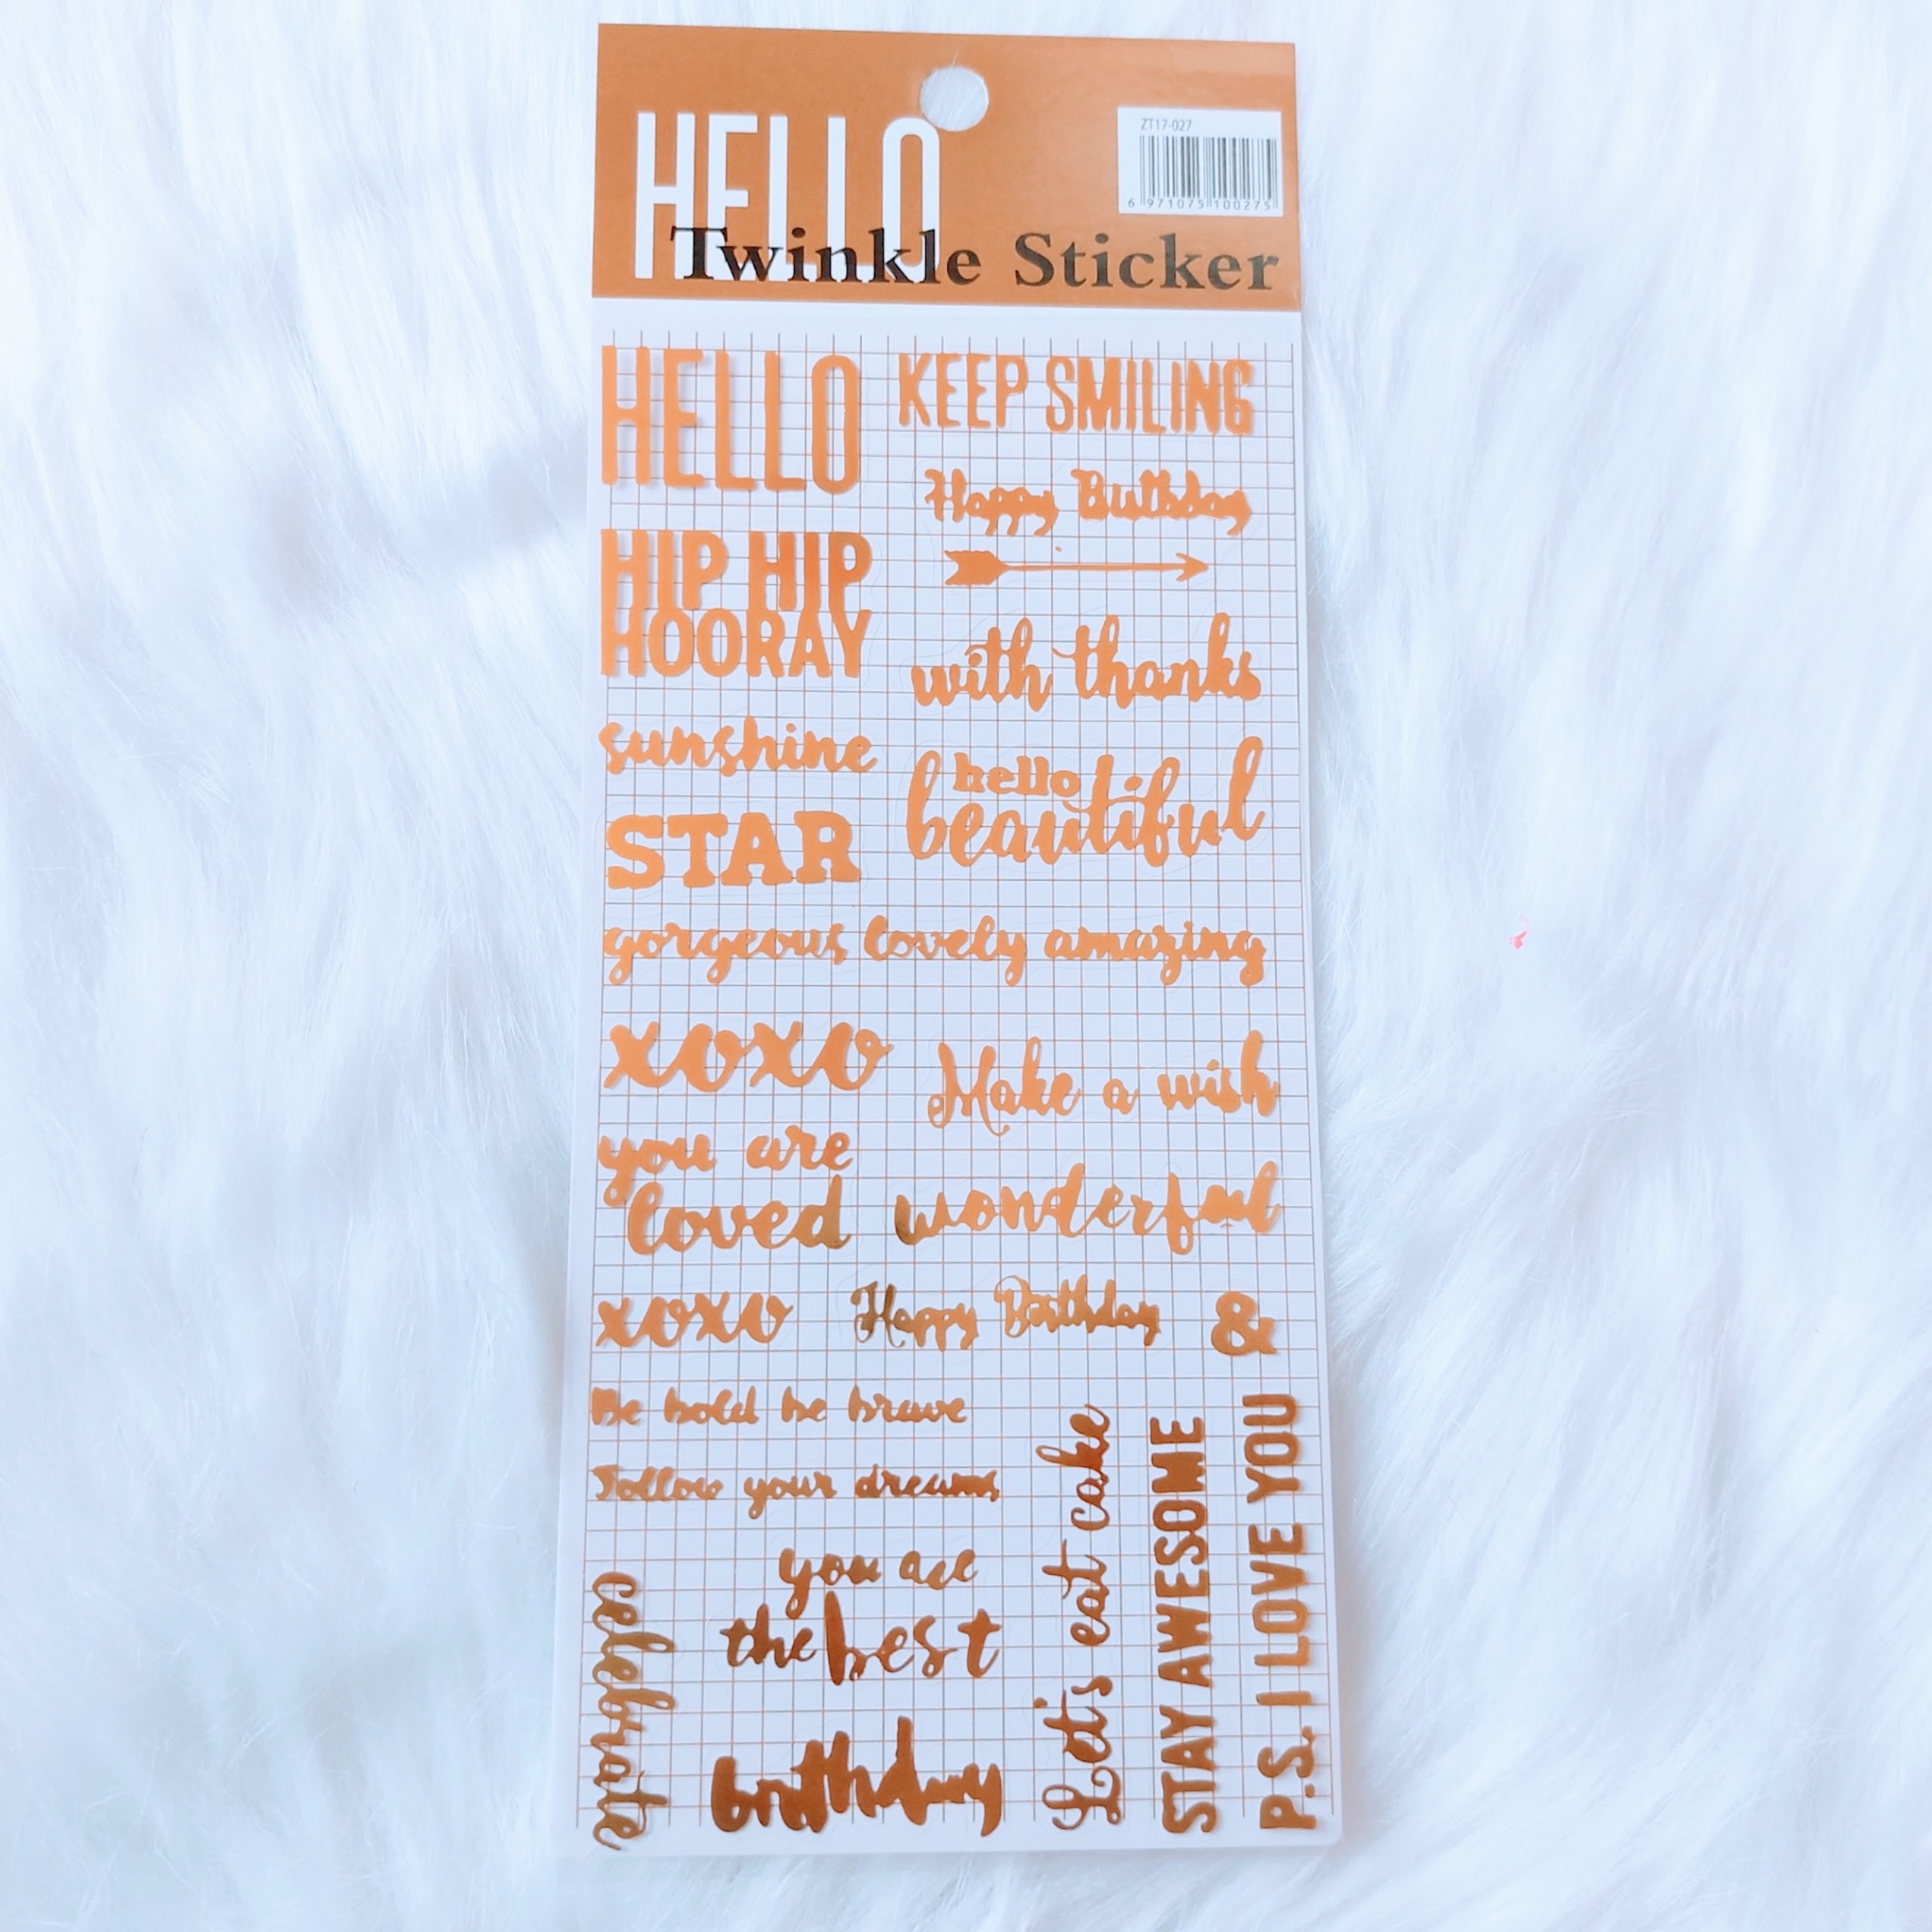 HELLO
Twinkle Sticker
ZT17-027
6 971075 100275
HELLO
KEEP SMILING
Happy Birthday
HIP HIP
HOORAY
with thanks
sunshine
hello
beautiful
STAR
gorgeous lovely amazing
xoxo
Make a wish
you are
loved
wonderful
xoxo
Happy Birthday
&
Be bold be brave
Follow your dreams
you are
the best
celebrate
birthday
Let's eat cake
STAY AWESOME
P.S. I LOVE YOU